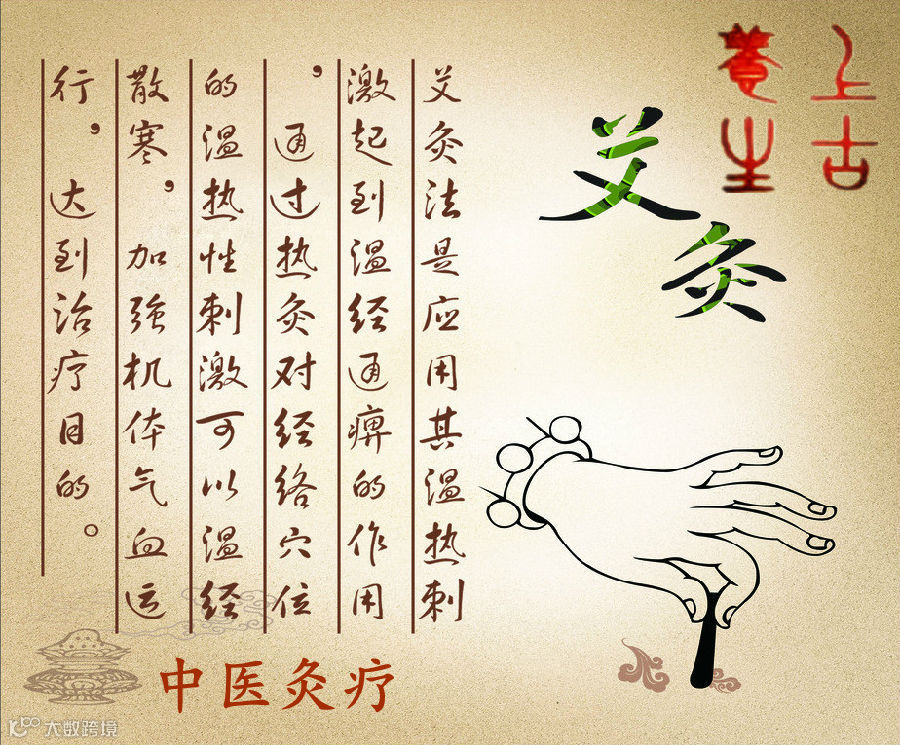 上古
養生
艾灸
艾灸法是应用其温热刺
激起到温经通痹的作用
，通过热灸对经络穴位
的温热性刺激可以温经
散寒，加强机体气血运
行，达到治疗目的。
中医灸疗
大数跨境